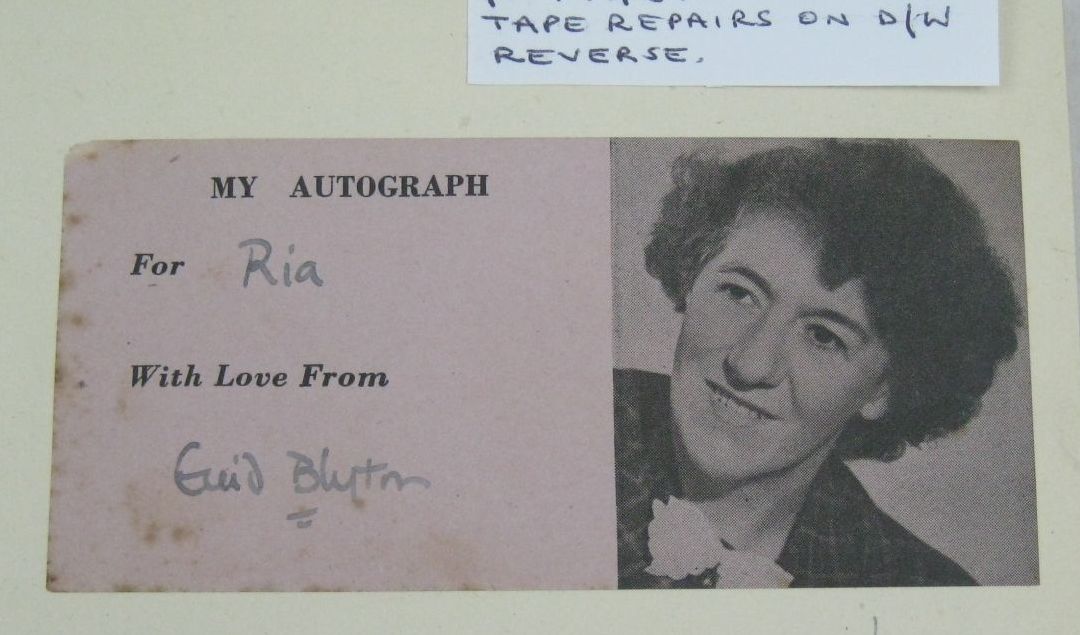 TAPE REPAIRS ON D/W
REVERSE.
MY AUTOGRAPH
For Ria
With Love From
Enid Blyton